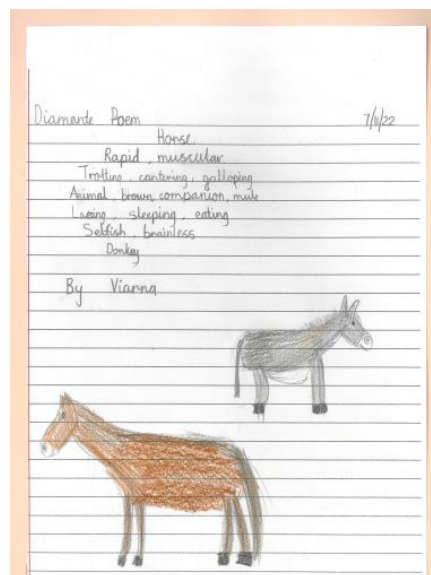 Diamante Poem 7/11/22
Horse
Rapid, muscular
Trotting, cantering, galloping
Animal, brown, companion, mule
Lazing, sleeping, eating
Selfish, brainless
Donkey
By Vianna